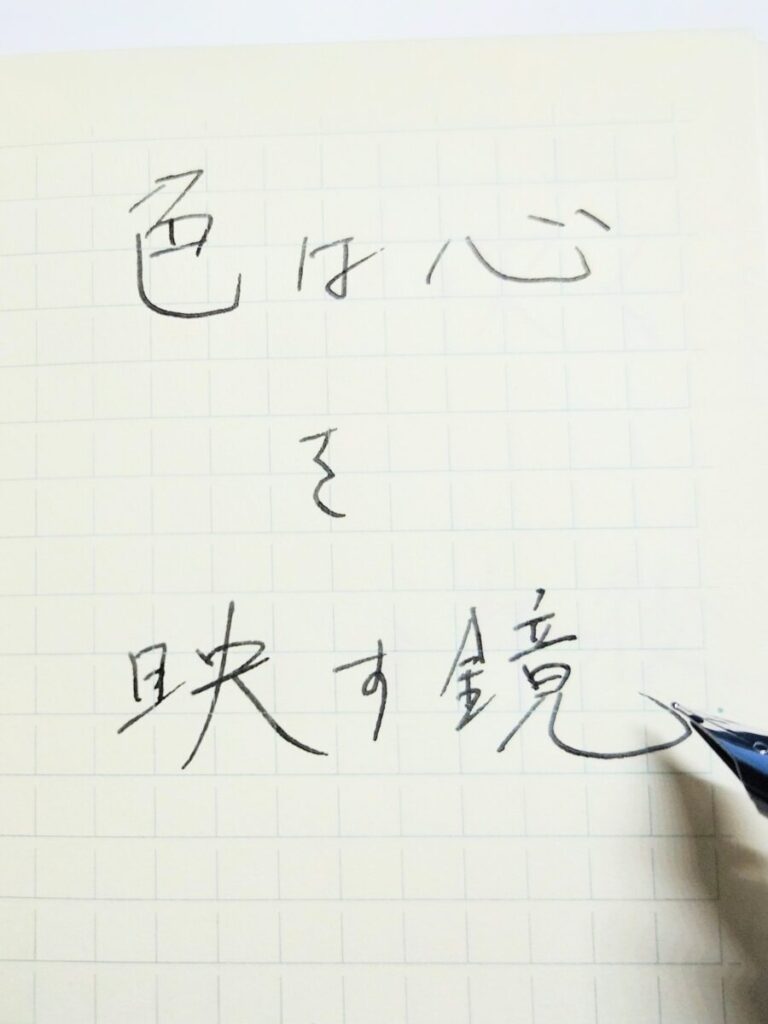 色は心
を
映す鏡